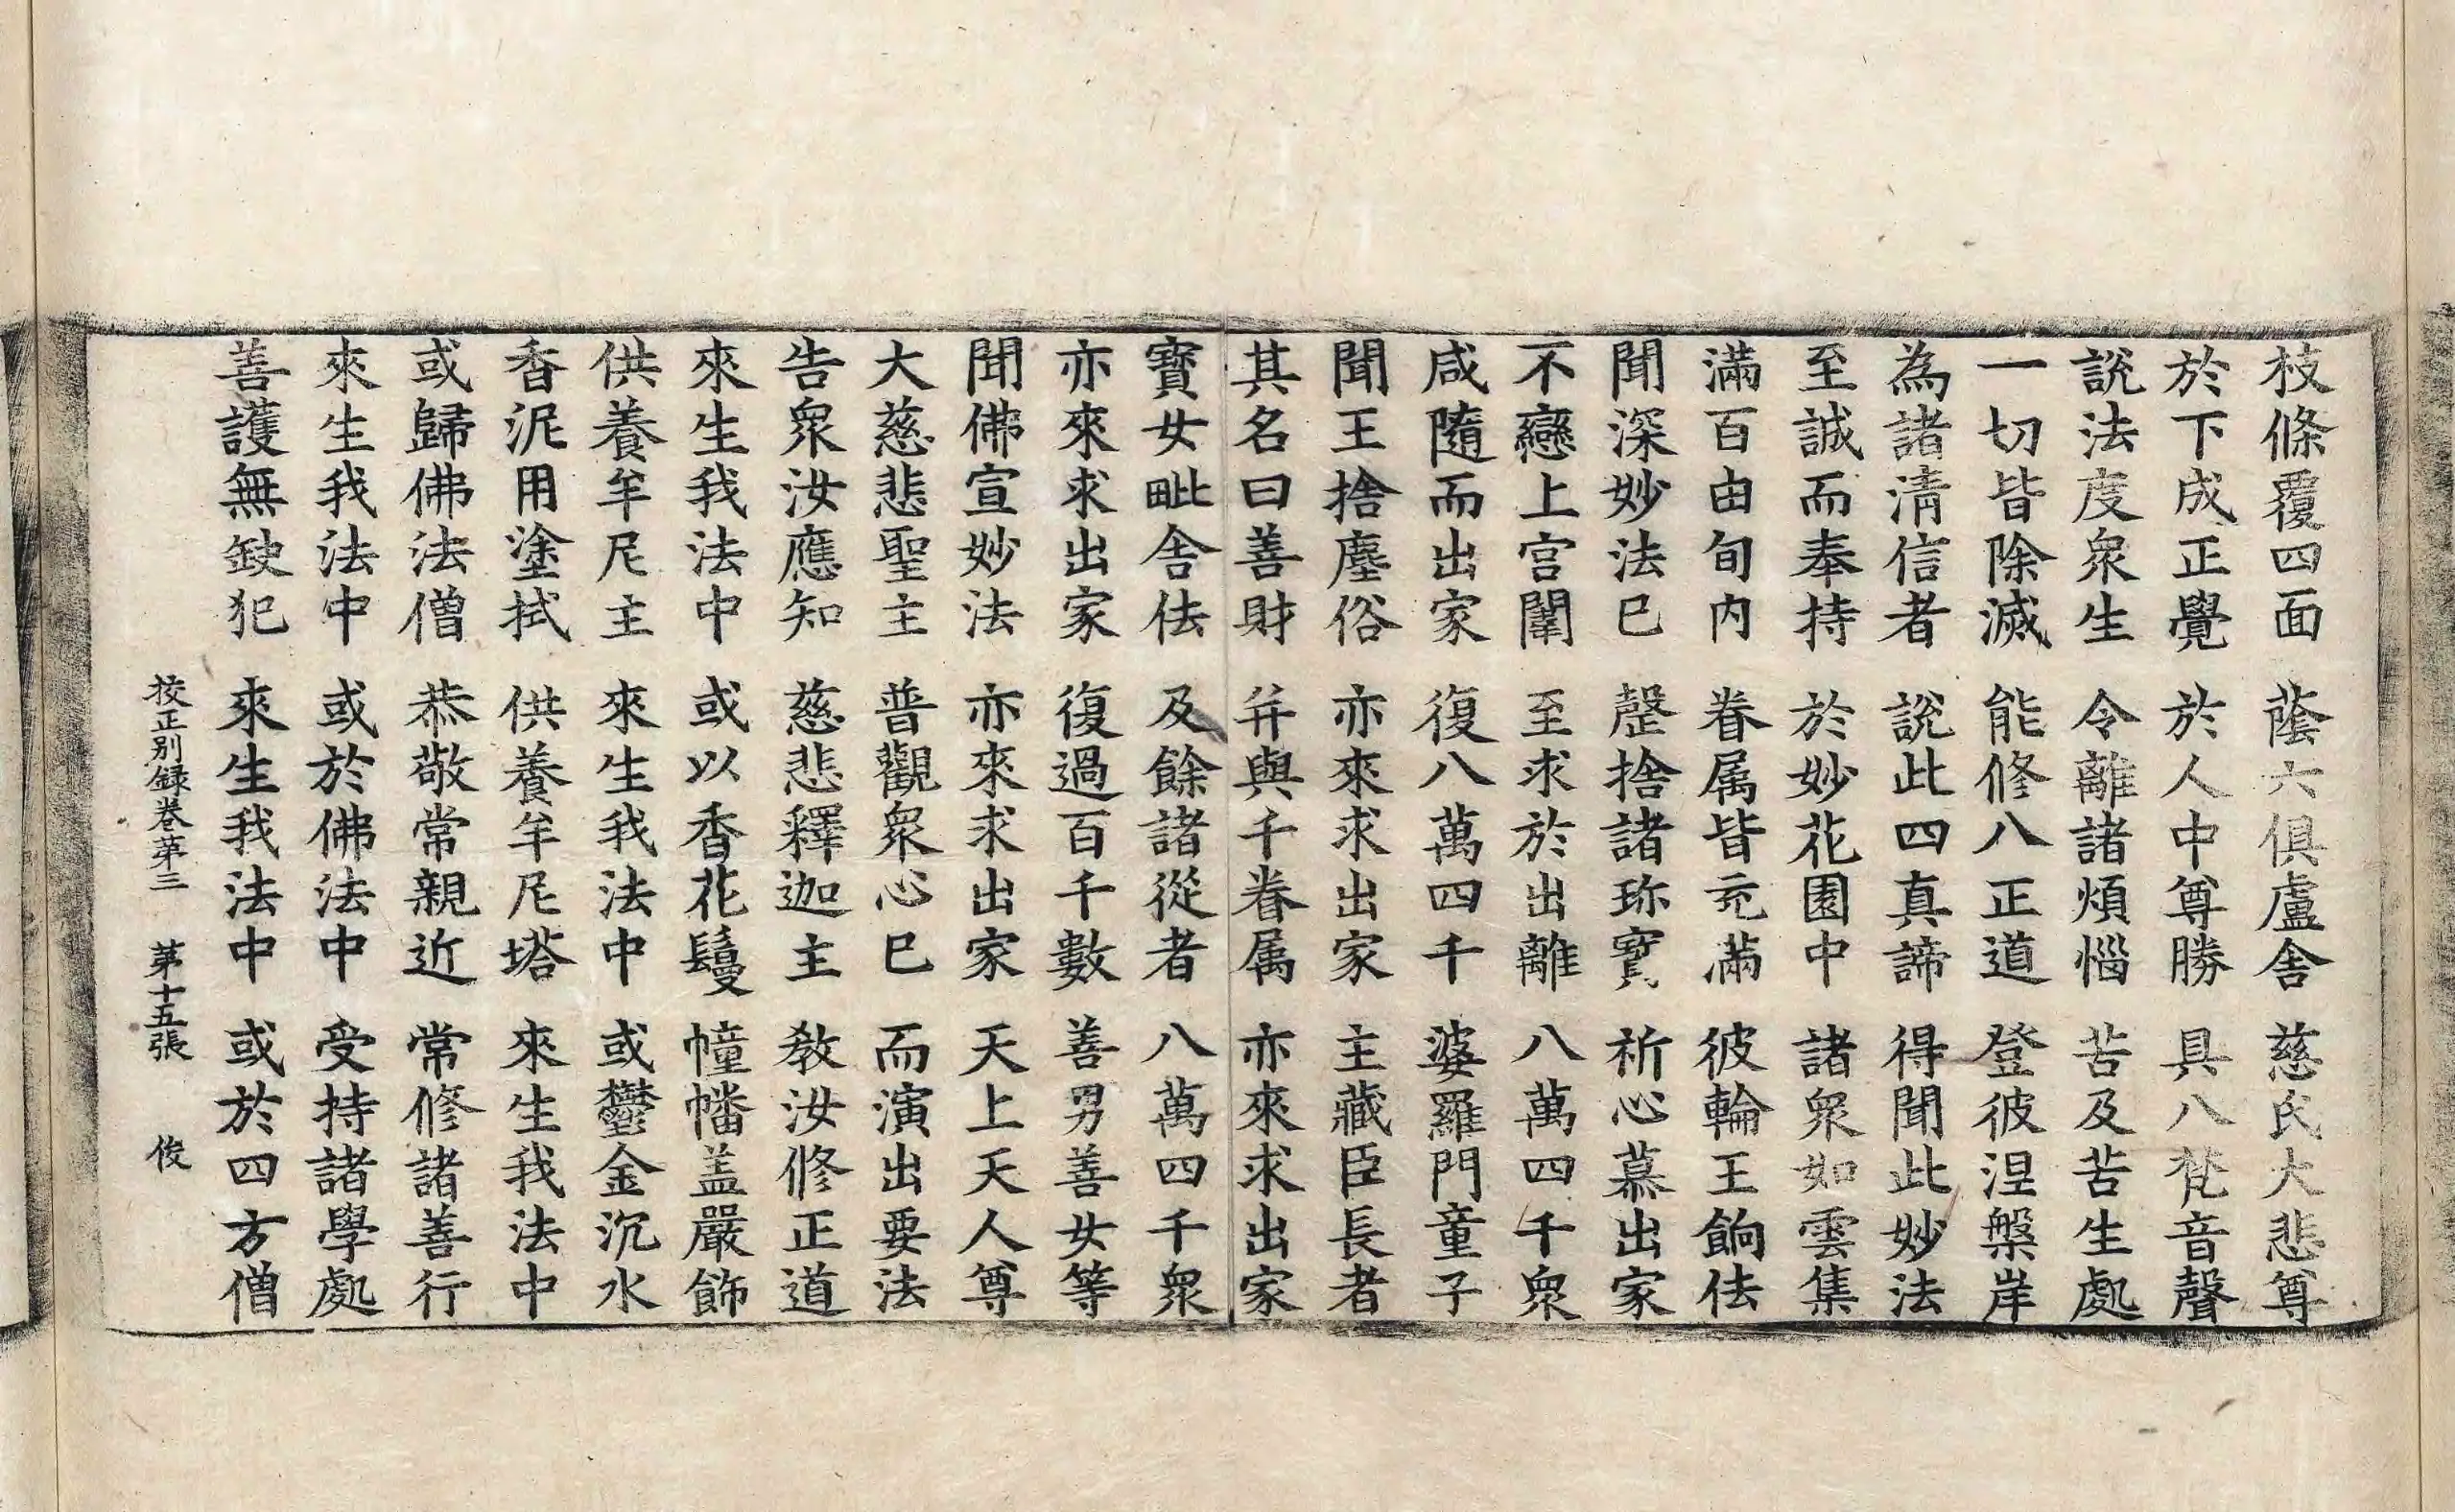 枝條覆四面 蔭六俱盧舍 慈氏大悲尊
於下成正覺 於人中尊勝 具八梵音聲
說法度衆生 令離諸煩惱 苦及苦生處
一切皆除滅 能修八正道 登彼涅槃岸
為諸淸信者 說此四真諦 得聞此妙法
至誠而奉持 於妙花園中 諸衆如雲集
滿百由旬内 眷属皆充滿 彼輪王餉佉
聞深妙法已 罄捨諸珎寳 祈心慕出家
不戀上宮闈 至求於出離 八萬四千衆
咸隨而出家 復八萬四千 婆羅門童子
聞王捨塵俗 亦來求出家 主藏臣長者
其名曰善財 并與千眷属 亦來求出家
寳女毗舍佉 及餘諸從者 八萬四千衆
亦來求出家 復過百千數 善男善女等
聞佛宣妙法 亦來求出家 天上天人尊
大慈悲聖主 普觀衆心已 而演出要法
告衆汝應知 慈悲釋迦主 教汝修正道
來生我法中 或以香花鬘 幢幡盖嚴飾
供養牟尼主 來生我法中 或鬱金沉水
香泥用塗拭 供養牟尼塔 來生我法中
或歸佛法僧 恭敬常親近 常修諸善行
來生我法中 或於佛法中 受持諸學處
善護無缺犯 來生我法中 或於四方僧
挍正別録卷苐三 苐十五張 俊